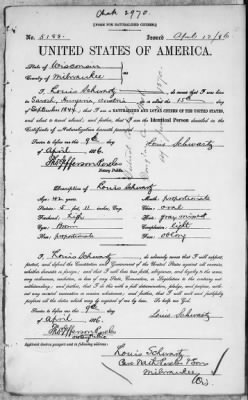 Chck 2970.
[FORM FOR NATURALIZED CITIZEN.]
No. 5188. Issued April 12/86
UNITED STATES OF AMERICA.
State of Wisconsin
County of Milwaukee
I, Louis Schwartz do swear that I was born
in Hungary, Austria on or about the 15th day
of September 1844, that I am a NATURALIZED AND LOYAL CITIZEN OF THE UNITED STATES,
and about to travel abroad; and further, that I am the
Identical Person described in the
Certificate of Naturalization herewith presented.
Sworn to before me this 9th day
of April 1886.
Louis Schwartz
Notary Public.
Description of Louis Schwartz
Age: 42 years.
Mouth: proportionate
Stature: 5 feet 11 inches, Eng.
Chin: oval
Forehead: high
Hair: gray mixed
Eyes: Brown
Complexion: light
Nose: proportionate
Face: oblong
I, Louis Schwartz, do solemnly swear that I will support,
protect, and defend the Constitution and Government of the United States against all enemies,
whether domestic or foreign; and that I will bear true faith, allegiance, and loyalty to the
same, any ordinance, resolution, or law of any State, Convention, or Legislature to the contrary not-
withstanding; and further, that I do this with a full determination, pledge, and purpose, with-
out any mental reservation or evasion whatsoever; and further, that I will well and faithfully
perform all the duties which may be required of me by law. So help me God.
Sworn to before me this 9th day
of April 1886.
Louis Schwartz
Applicant desires passport sent to following address:
Louis Schwartz
Milwaukee
Wis.